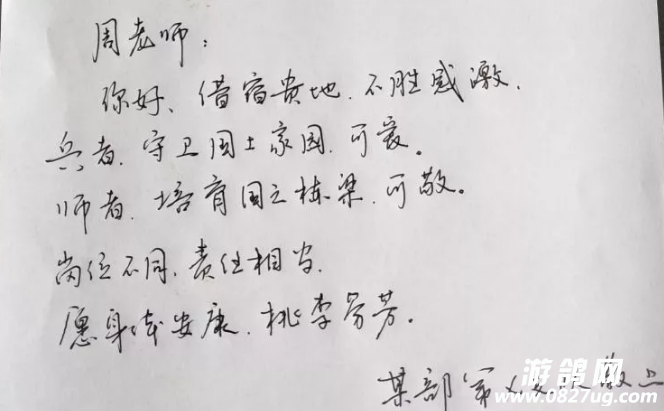 周老师:
你好、借宿贵地、不胜感激,
兵者、守卫国土家园、可爱。
师者、培育国之栋梁、可敬。
岗位不同、责任相当、
愿身体安康、桃李芬芳。
某部 敬上
游鸽网
www.0827ug.com